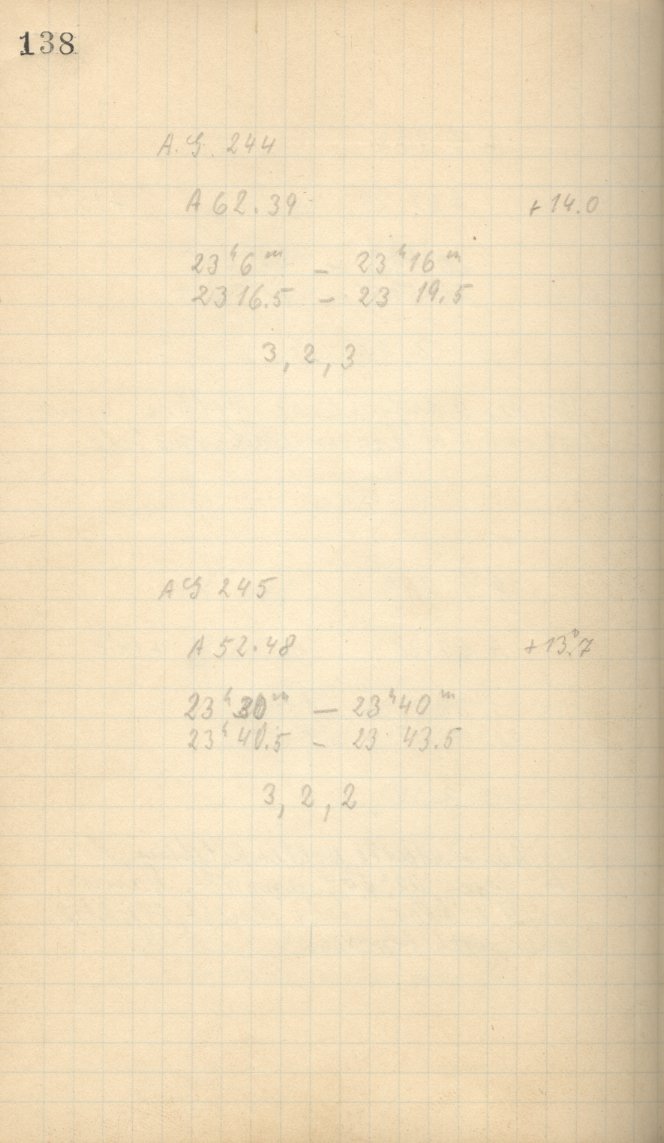 138
A.G. 244
A 62.39 +14.0
23ʰ6ᵐ – 23ʰ16ᵐ
23 16.5 – 23 19.5
3, 2, 3
AG 245
A 52.48 +13°.7
23ʰ30ᵐ – 23ʰ40ᵐ
23ʰ40.5 – 23 43.5
3, 2, 2